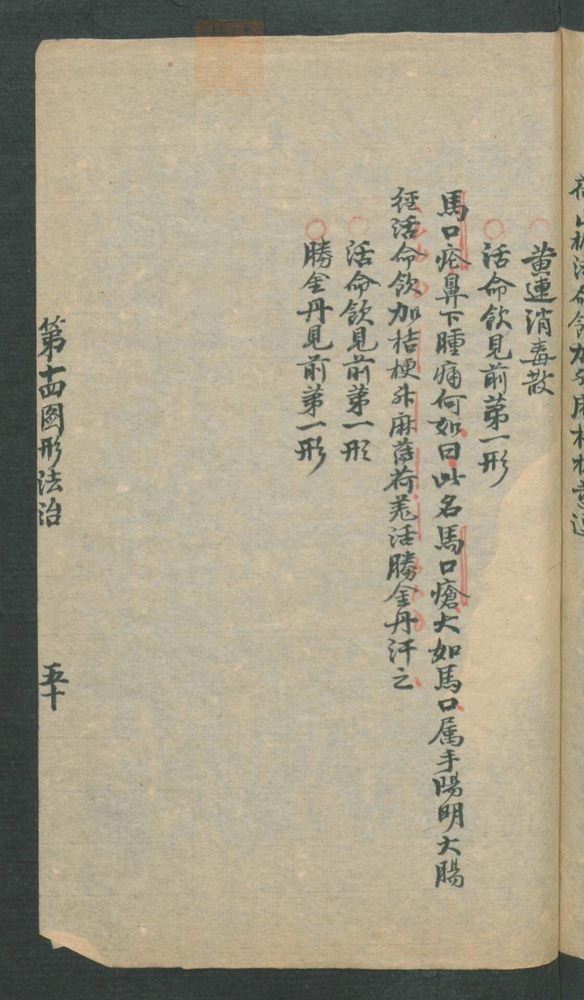 黄連消毒散
活命飲見前第一形
馬口疮鼻下腫痛何如曰此名馬口瘡大如馬口属手陽明大腸
经活命飲加桔梗升麻薄荷羗活勝金丹汗之
活命飲見前第一形
勝金丹見前第一形
第十四圖形法治
五十